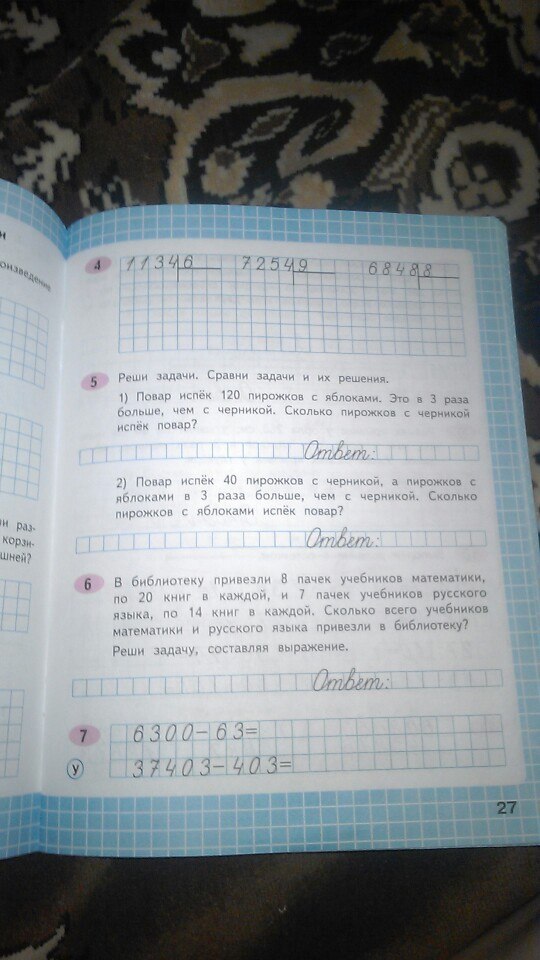 н
оизведение
4 1134 6 7254 9 6848 8
5 Реши задачи. Сравни задачи и их решения.
1) Повар испёк 120 пирожков с яблоками. Это в 3 раза
больше, чем с черникой. Сколько пирожков с черникой
испёк повар?
Ответ:
2) Повар испёк 40 пирожков с черникой, а пирожков с
яблоками в 3 раза больше, чем с черникой. Сколько
пирожков с яблоками испёк повар?
Ответ:
ни раз-
корзи-
шней?
6 В библиотеку привезли 8 пачек учебников математики,
по 20 книг в каждой, и 7 пачек учебников русского
языка, по 14 книг в каждой. Сколько всего учебников
математики и русского языка привезли в библиотеку?
Реши задачу, составляя выражение.
Ответ:
7 6300-63=
У 37403-403=
27